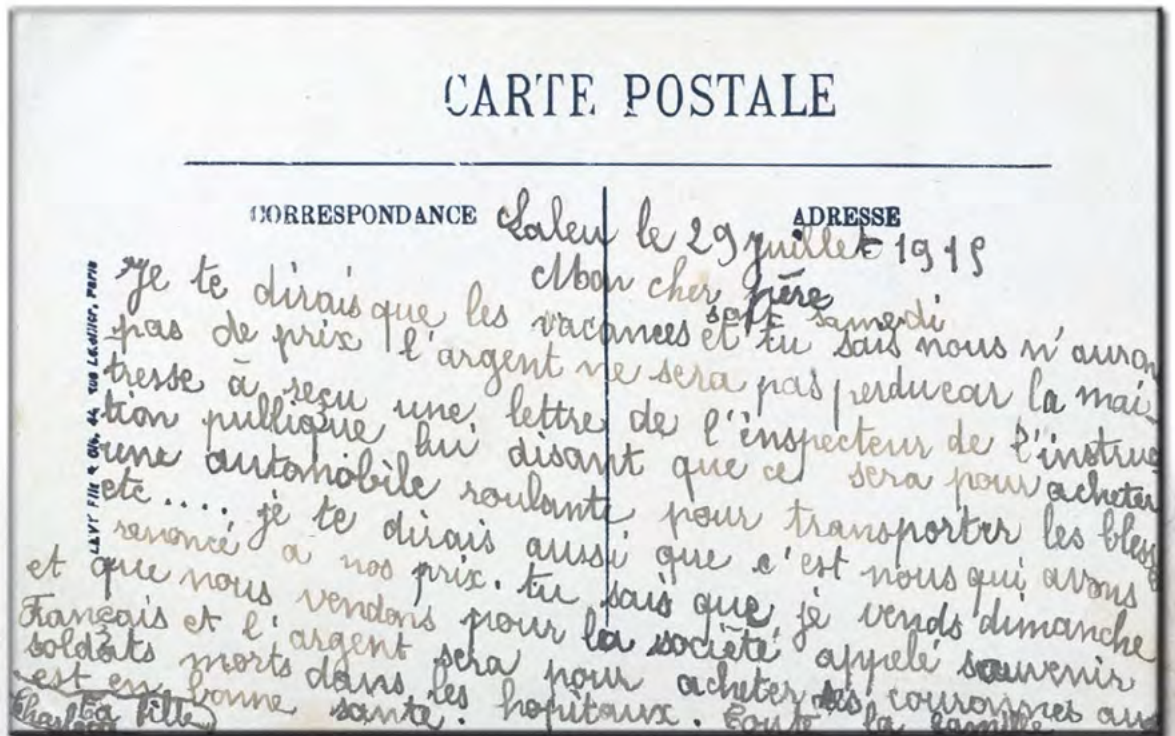 CARTE POSTALE
CORRESPONDANCE
ADRESSE
LEVY Fils & Cie. 44 rue Letellier, Paris
Laleu le 29 juillet 1915
Mon cher père
Je te dirais que les vacances sont samedi
et tu sais nous n'auron
pas de prix l'argent ne sera pas perdu car la mai-
tresse à reçu une lettre de l'inspecteur de l'instruc
tion publique lui disant que ce sera pour acheter
une automobile roulante pour transporter les blessé
etc.... je te dirais aussi que c'est nous qui avons
renoncé a nos prix. tu sais que je vends dimanche
et que nous vendons pour la société appelé souvenir
Français et l'argent sera pour acheter des couronnes aux
soldats morts dans les hopitaux. toute la famille
est en bonne santé.
Ta fille